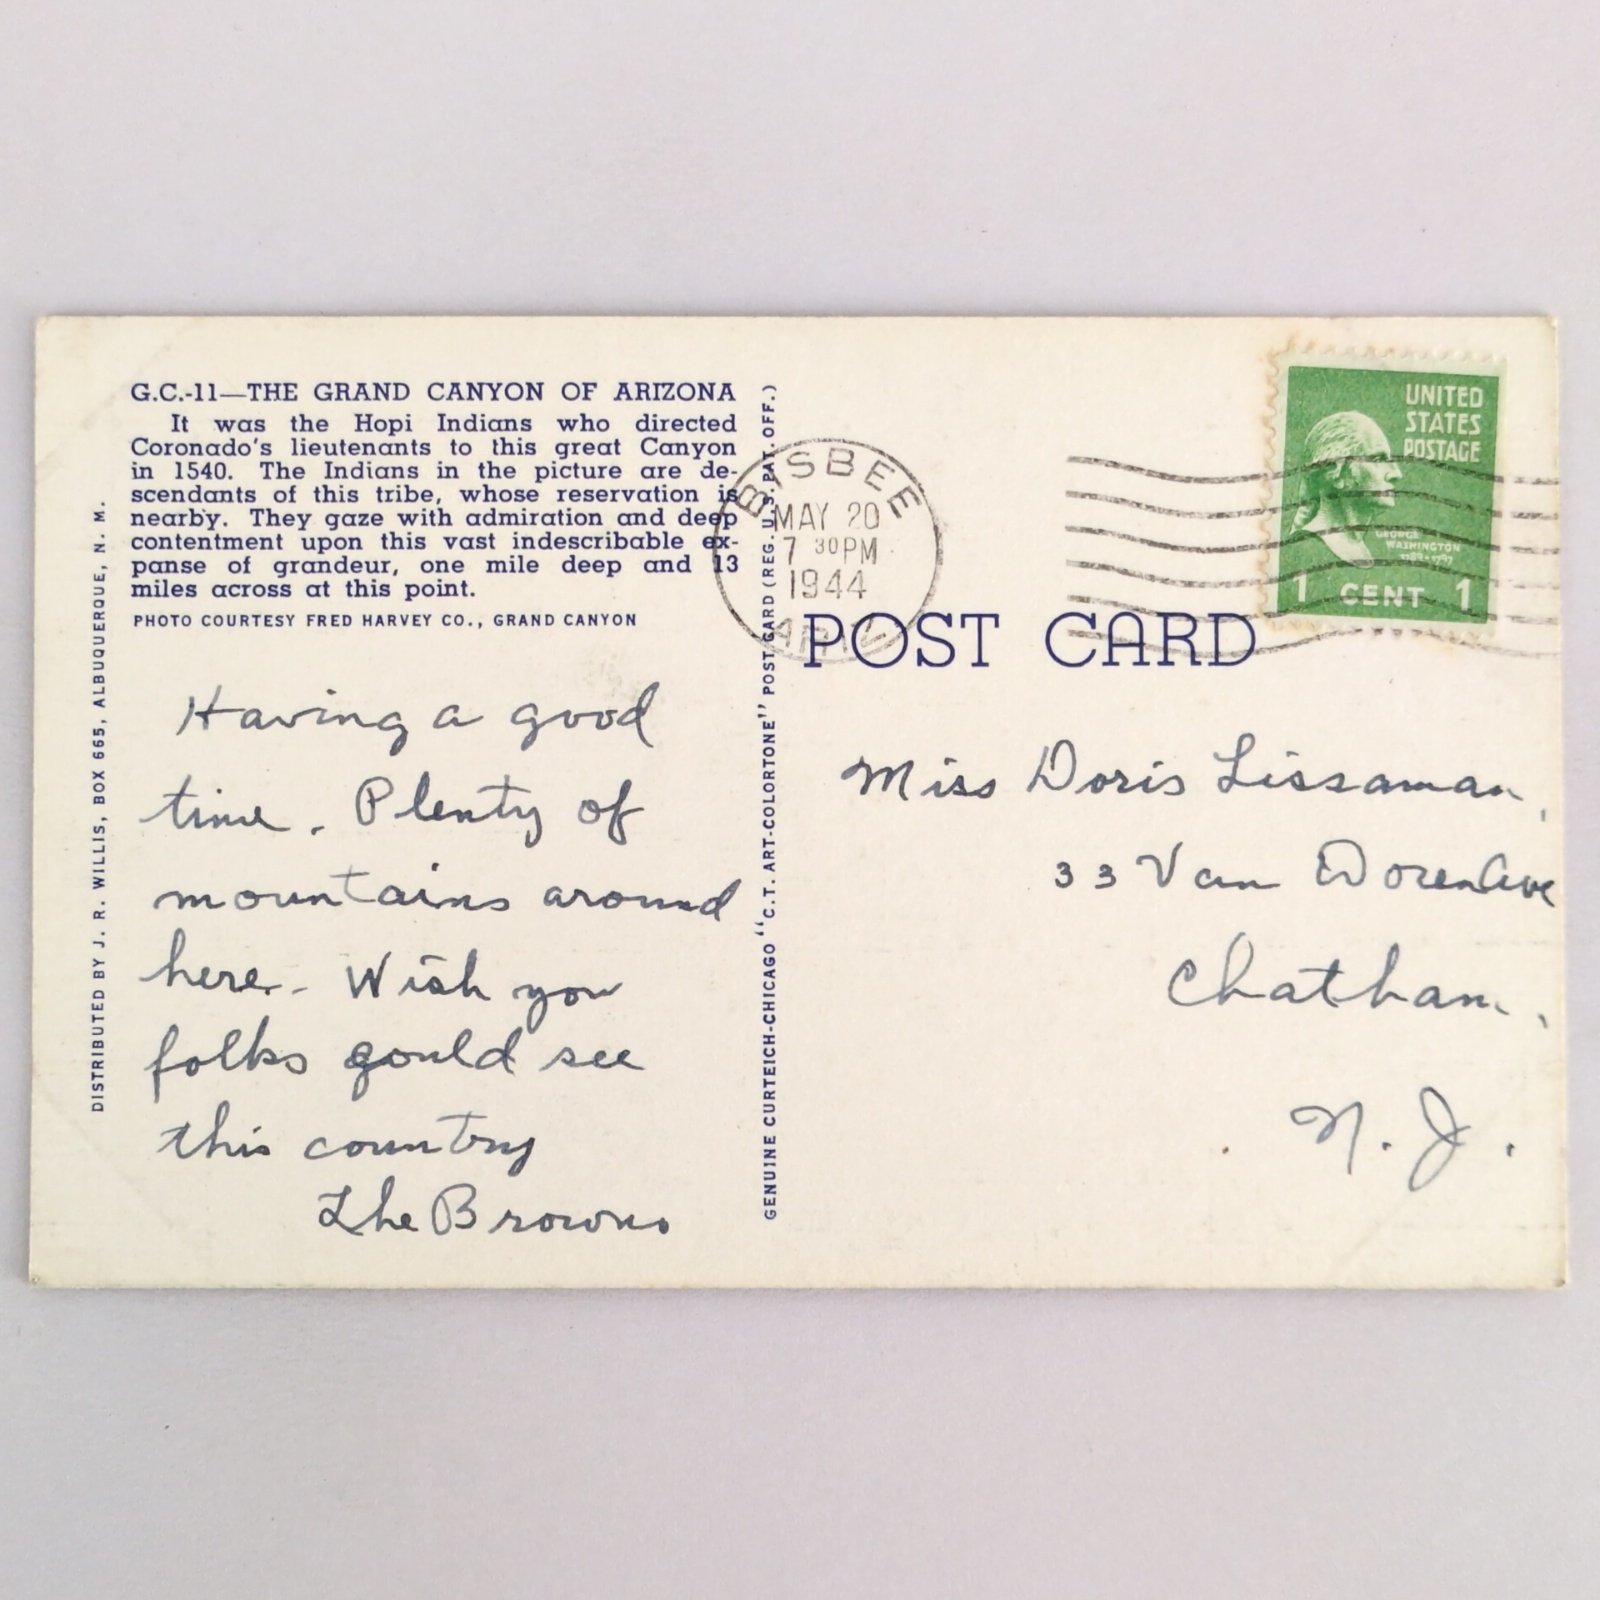 G.C.-11—THE GRAND CANYON OF ARIZONA
It was the Hopi Indians who directed
Coronado's lieutenants to this great Canyon
in 1540. The Indians in the picture are de-
scendants of this tribe, whose reservation is
nearby. They gaze with admiration and deep
contentment upon this vast indescribable ex-
panse of grandeur, one mile deep and 13
miles across at this point.
PHOTO COURTESY FRED HARVEY CO., GRAND CANYON
DISTRIBUTED BY J. R. WILLIS, BOX 665, ALBUQUERQUE, N. M.
Having a good
time. Plenty of
mountains around
here. Wish you
folks gould see
this country
The Browns
GENUINE CURTEICH-CHICAGO "C.T. ART-COLORTONE" POST CARD (REG. U.S. PAT. OFF.)
BISBEE
MAY 20
7 30PM
1944
ARIZ.
UNITED
STATES
POSTAGE
GEORGE
WASHINGTON
1789-1797
1 CENT 1
POST CARD
Miss Doris Lissaman,
33 Van Doren Ave
Chatham,
N. J.